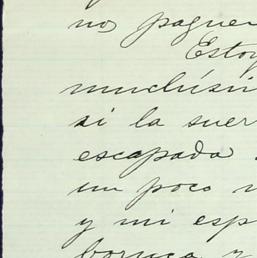 nos pague
Estoy
muchísi
si la suer
escapada
un poco
y mi esp
boruca y